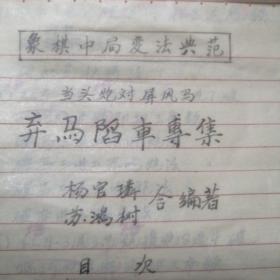 象棋中局变法典范
当头炮对屏风马
弃马陷車專集
杨官璘
苏鴻树 合编著
目 次